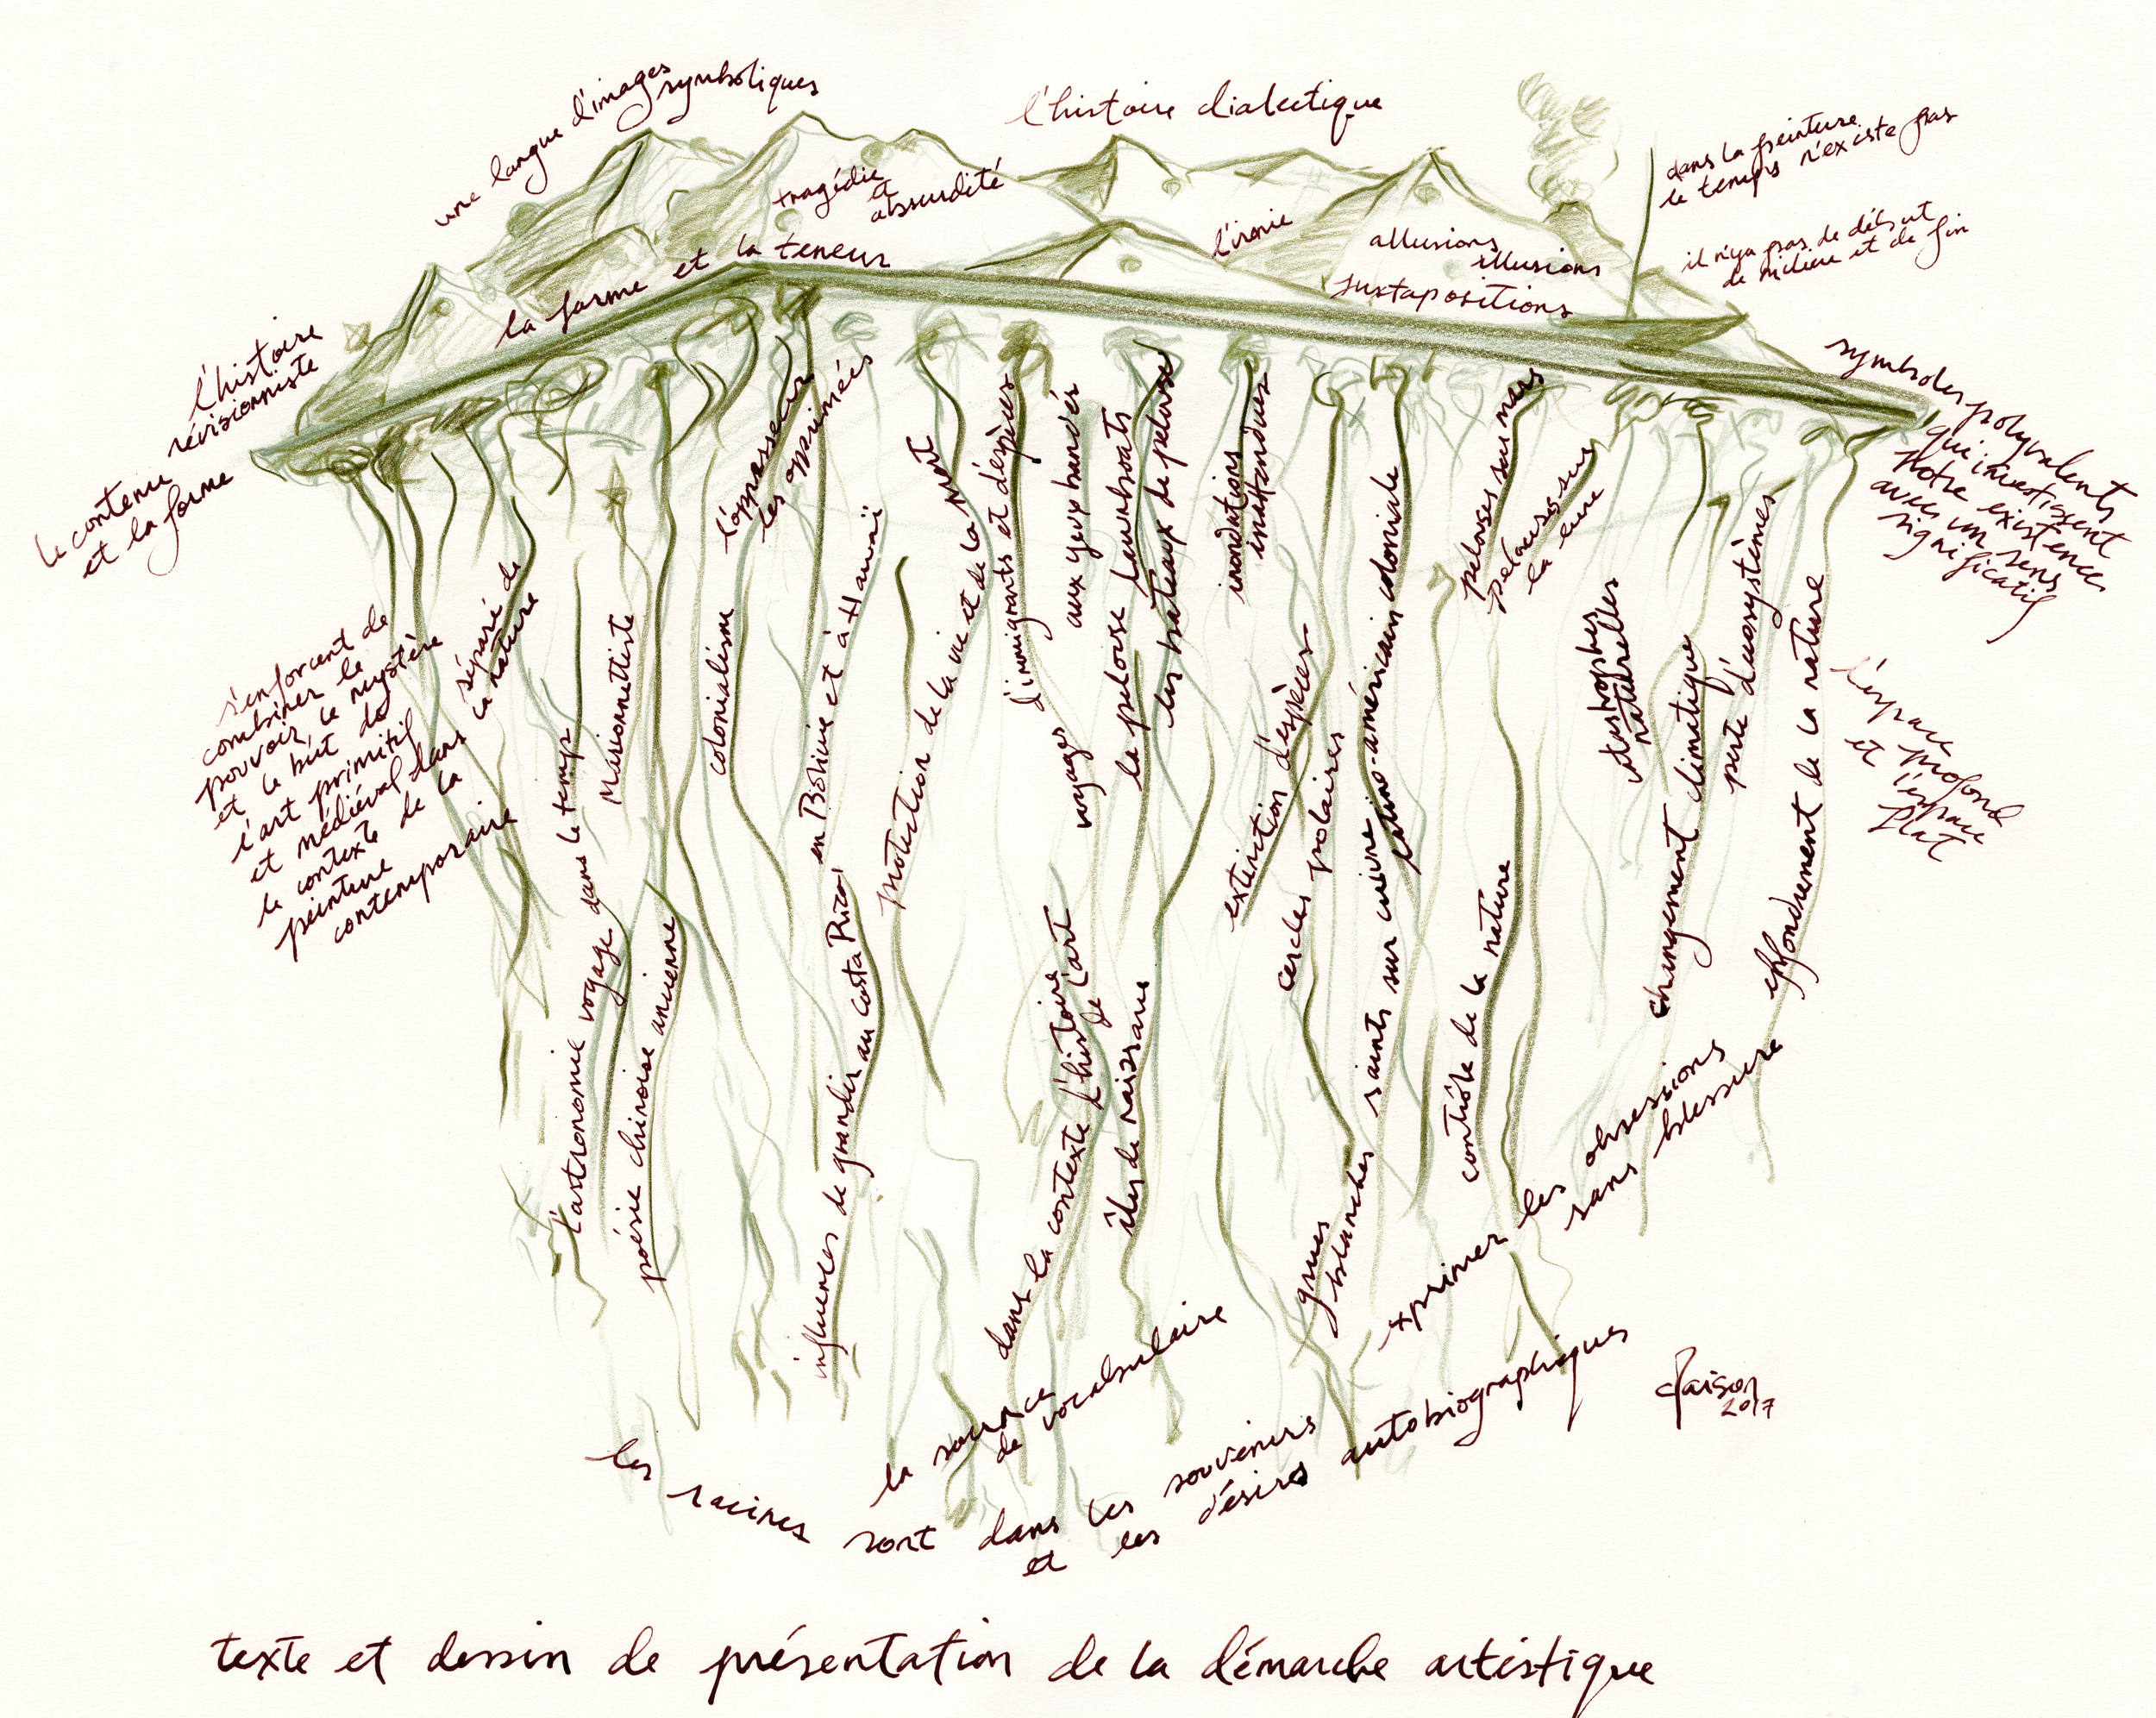 une langue d'images symboliques
l'histoire dialectique
dans la peinture
le temps n'existe pas
il n'ya pas de début
de milieu et de fin
tragédie
et
absurdité
l'ironie
allusions
illusions
juxtapositions
la forme et la teneur
l'histoire
révisionniste
le contenu
et la forme
symboles polyvalents
qui investissent
notre existence
avec un sens
significatif
l'espace profond
et l'espace
flat
s'enforcent de
combiner le
pouvoir le mystère
et le bút de
l'art primitif
et médiéval dans
le contexte de la
peinture
contemporaire
séparé de
la nature
l'astronomie voyage dans le temp
Marionnettiste
poésie chinoise ancienne
colonialisme
l'oppresseur
les opprimées
influences de grandir au Costa Rica
en Bolivie et à Hawaï
protection de la vie et de la mort
d'immigrants et d'espèces
aux yeux bandés
voyages
dans la contexte d'histoire
de l'art
la pelouse launboats
les bateaux de pelouse
îles de naissance
inondations
inattendues
extinction d'espèces
cercles polaires
grues
blanches
saints sur cuivre
latino-américain coloniale
pelouses sur mars
pelouses sur
la lune
contrôle de la nature
catastrophes
naturelles
changement climatique
perte d'écosystèmes
effondrement de la nature
exprimer les obsessions
sans blessure
la source
de vocabulaire
les racines sont dans les souvenirs
et les désires autobiographiques
2017
texte et dessin de présentation de la démarche artistique